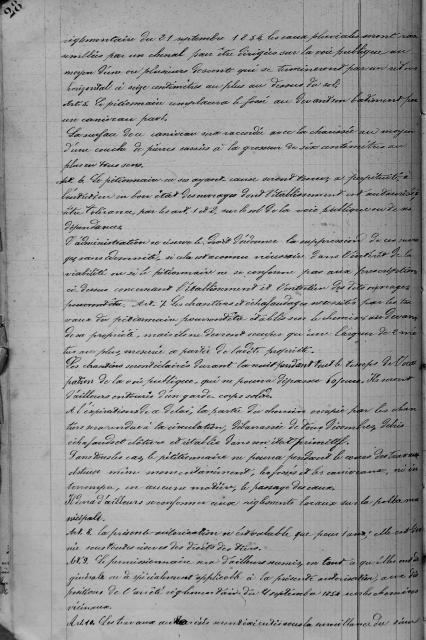 28
réglementaire du 21 septembre 1854 les eaux pluviales seront ras
semblées par un chenal pour être dirigées sur la voie publique au
moyen d'un ou plusieurs descentes qui se termineront par un
horizontal à vingt centimètres au plus au dessus du sol.
Art. 5. Le pétitionnaire remplacera le fossé au devant son bâtiment par
un caniveau pavé.
La surface de ce caniveau sera raccordée avec la chaussée au moyen
d'une couche de pierres cassées à la grosseur de six centimètres au
plus en tous sens.
Art. 6. Le pétitionnaire ou ses ayant cause seront tenus à perpétuité à
l'entretien en bon état des ouvrages dont l'établissement est autorisé
être toléré, par les art. 1 et 5, sur le sol de la voie publique ou de ses
dépendances.
L'administration se réserve le droit d'ordonner la suppression de ces ouvra
ges sans indemnité, si elle est reconnue nécessaire dans l'intérêt de la
viabilité ou si le pétitionnaire ne se conforme pas aux prescriptions
ci dessus concernant l'établissement et l'entretien des dits ouvrages.
Art. 7. Les chantiers et échafaudages nécessités par les tra
vaux du pétitionnaire pourront être établis sur le chemin au devant
de sa propriété, mais ils ne devront occuper qu'une largeur de 2 mè
tres au plus, mesurée à partir de la dite propriété.
Les chantiers seront éclairés durant la nuit pendant tout le temps de l'occu
pation de la voie publique, qui ne pourra dépasser jours. Ils seront
d'ailleurs entourés d'un garde corps solide.
A l'expiration de ce délai, la partie du chemin occupée par les chan
tiers sera rendue à la circulation, débarrassée de tous décombres, débris
échafauds et clôtures et établie dans son état primitif.
Dans tous les cas, le pétitionnaire ne pourra pendant le cours des travaux
obstruer même momentanément, les fossés et les caniveaux, ni in
terrompre, en aucune manière, le passage des eaux.
Il devra d'ailleurs se conformer aux règlements locaux sur la police mu
nicipale.
Art. 8. La présente autorisation n'est valable que pour 1 an, elle est don
née sous toutes réserves des droits des tiers.
Art. 9. Le permissionnaire sera d'ailleurs soumis, en tout ce qu'elles ont de
générale ou de spécialement applicable à la présente autorisation, aux dis
positions de l'arrêté réglementaire du 21 septembre 1854 sur les chemins
vicinaux.
Art. 10. Les travaux autorisés seront exécutés sous la surveillance du sieur